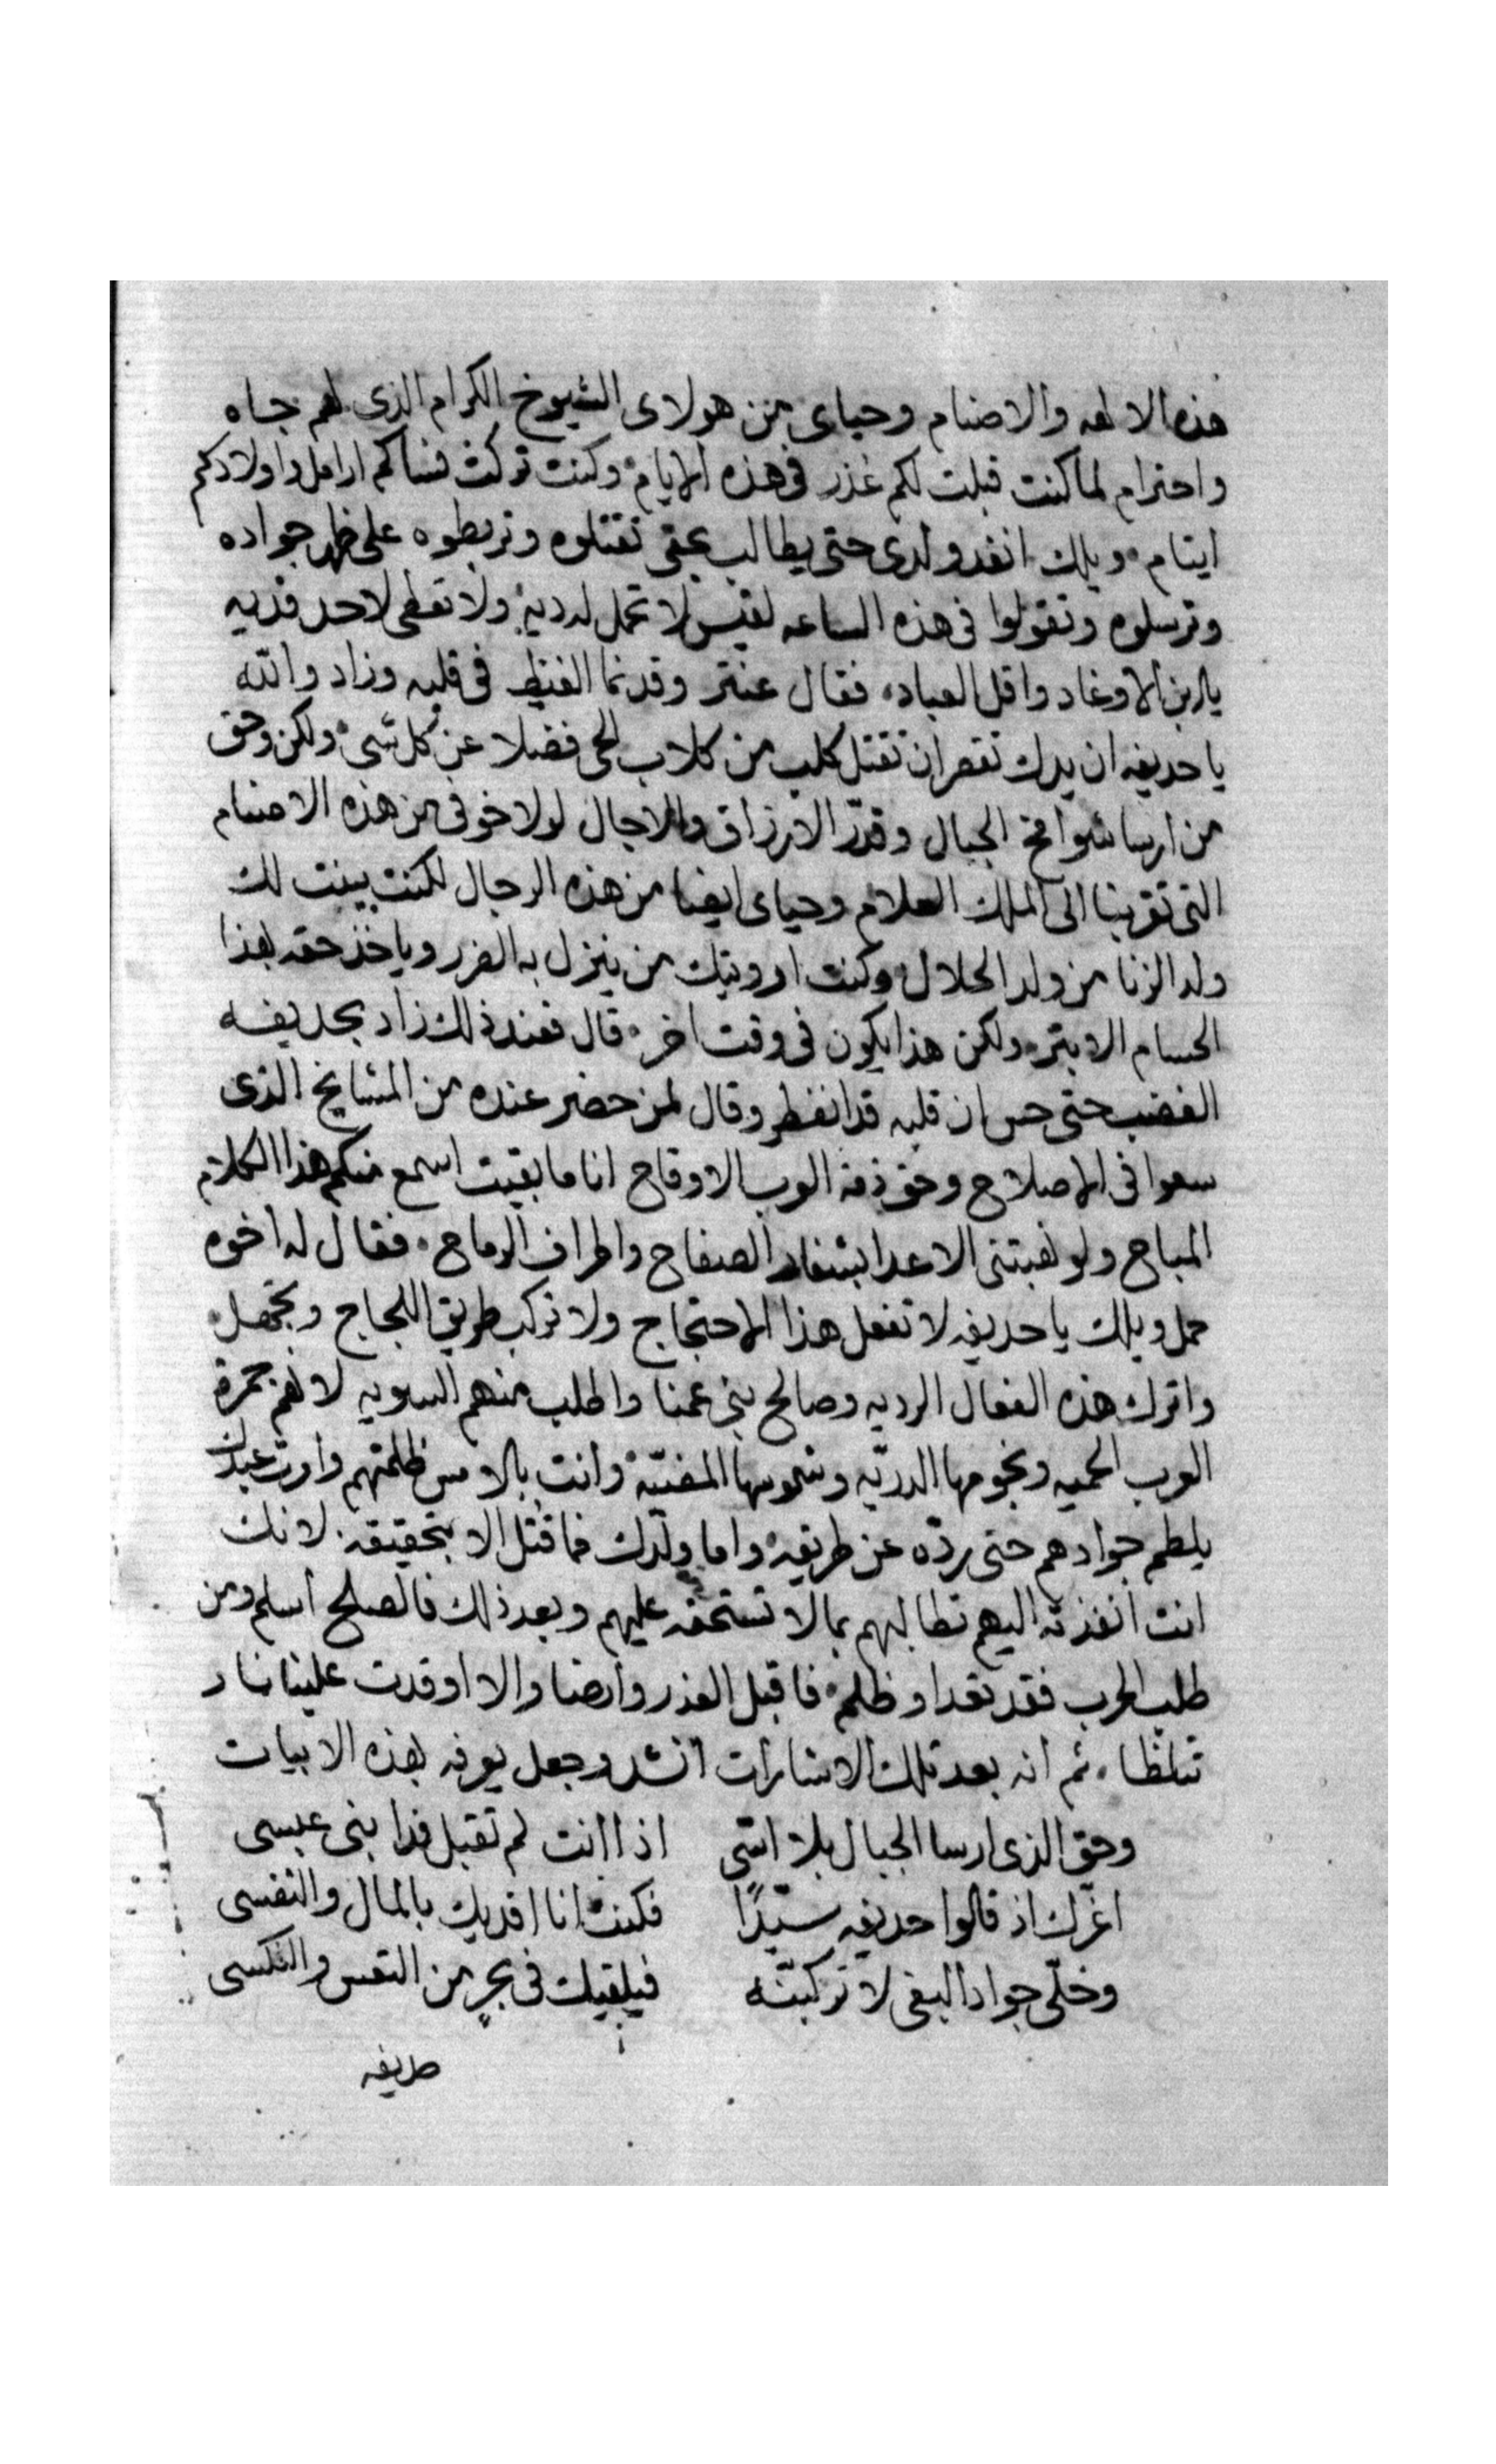 هذه الالهه والاصنام وحياى من هولاى الشيوخ الكرام الذى لهم جاه
واحترام لما كنت قبلت لكم عذر فى هذه الايام وكنت تركت نساكم ارامل واولادكم
ايتام ويلك انفد ولدى حتى يطالب بحقى تقتلوه وتربطوه على ظهر جواده
وترسلوه وتقولوا فى هذه الساعه لقيس لا تحمل له ديه ولا تعطى لاحد فديه
يا ابن الاوغاد واقل العباد فقال عنتر وقد نما الغيظ فى قلبه وزاد والله
يا حديفه ان يدك تقصر ان تقتل كلب من كلاب الحى فضلا عن كل شى ولكن وحق
من ارسا شوامخ الجبال وقدّر الارزاق والاجال لولا خوفى من هذه الاصنام
التى تقربنا الى الملك العلام وحياى ايضا من هذه الرجال لكنت بينت لك
ولد الزنا من ولد الحلال وكنت اورويتك من ينزل به الضرر وياخذ حقه بهذا
الحسام الابتر ولكن هذا يكون فى وقت اخر قال فعند ذلك زاد بحديفه
الغضب حتى حس ان قلبه قد انفطر وقال لمن حضر عنده من المشايخ الذى
سعوا فى الاصلاح وحق ذمة العرب الاوقاح انا ما بقيت اسمع منكم هذا الكلام
المباح ولو نهبتنى الاعدا بشفار الصفاح واطراف الرماح فقال له اخوه
حمل ويلك يا حديفه لا تفعل هذا الاحتجاج ولا تركب طريق اللجاج وتجهل
واترك هذه الفعال الرديه وصالح بنى عمنا واطلب منهم السويه لانهم جمرة
العرب الحميه ونجومها الدريّه وشموسها المضيّه وانت بالامس ظلمتهم وامرت عبدك
يلطم جوادهم حتى ردّه عن طريقه واما ولدك فما قتل الا بتحقيقه لانك
انت انفذته اليهم تطالبهم بما لا تستحقه عليهم وبعد ذلك فالصلح اسلم ومن
طلب الحرب فقد تعدا وظلم فاقبل العذر وارضا والا اوقدت علينا نار
تتلظا ثم انه بعد تلك الاشارات انشد وجعل يعرفه بهذه الابيات
وحق الذى ارسا الجبال بلا اسّى اذا انت لم تقبل فدا بنى عبسى
اغرّك اذ قالوا حديفه سيّدًا فكنت انا افديك بالمال والنفسى
وخلّى جواد البغى لا تركبنّه فيلقيك فى بحرٍ من التعس والنكسى
طريقه